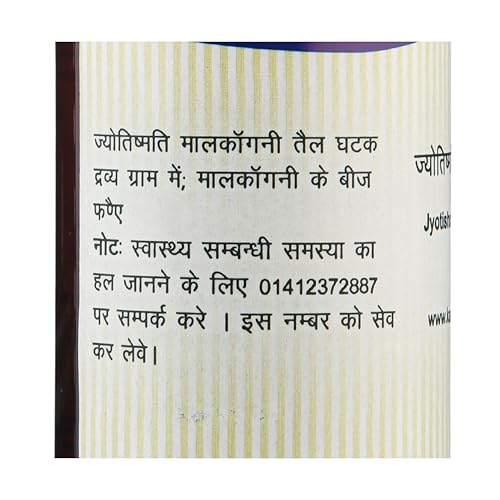 ज्योतिष्मति मालकॉगनी तैल घटक
द्रव्य ग्राम में; मालकॉगनी के बीज
फण्ए
नोटः स्वास्थ्य सम्बन्धी समस्या का
हल जानने के लिए 01412372887
पर सम्पर्क करे । इस नम्बर को सेव
कर लेवे।